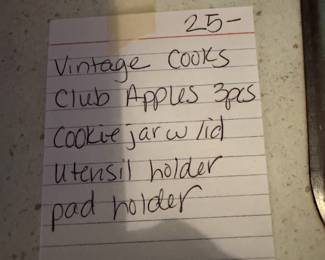 25-
Vintage Cooks
Club Apples 3pcs
Cookie jar w lid
Utensil holder
pad holder